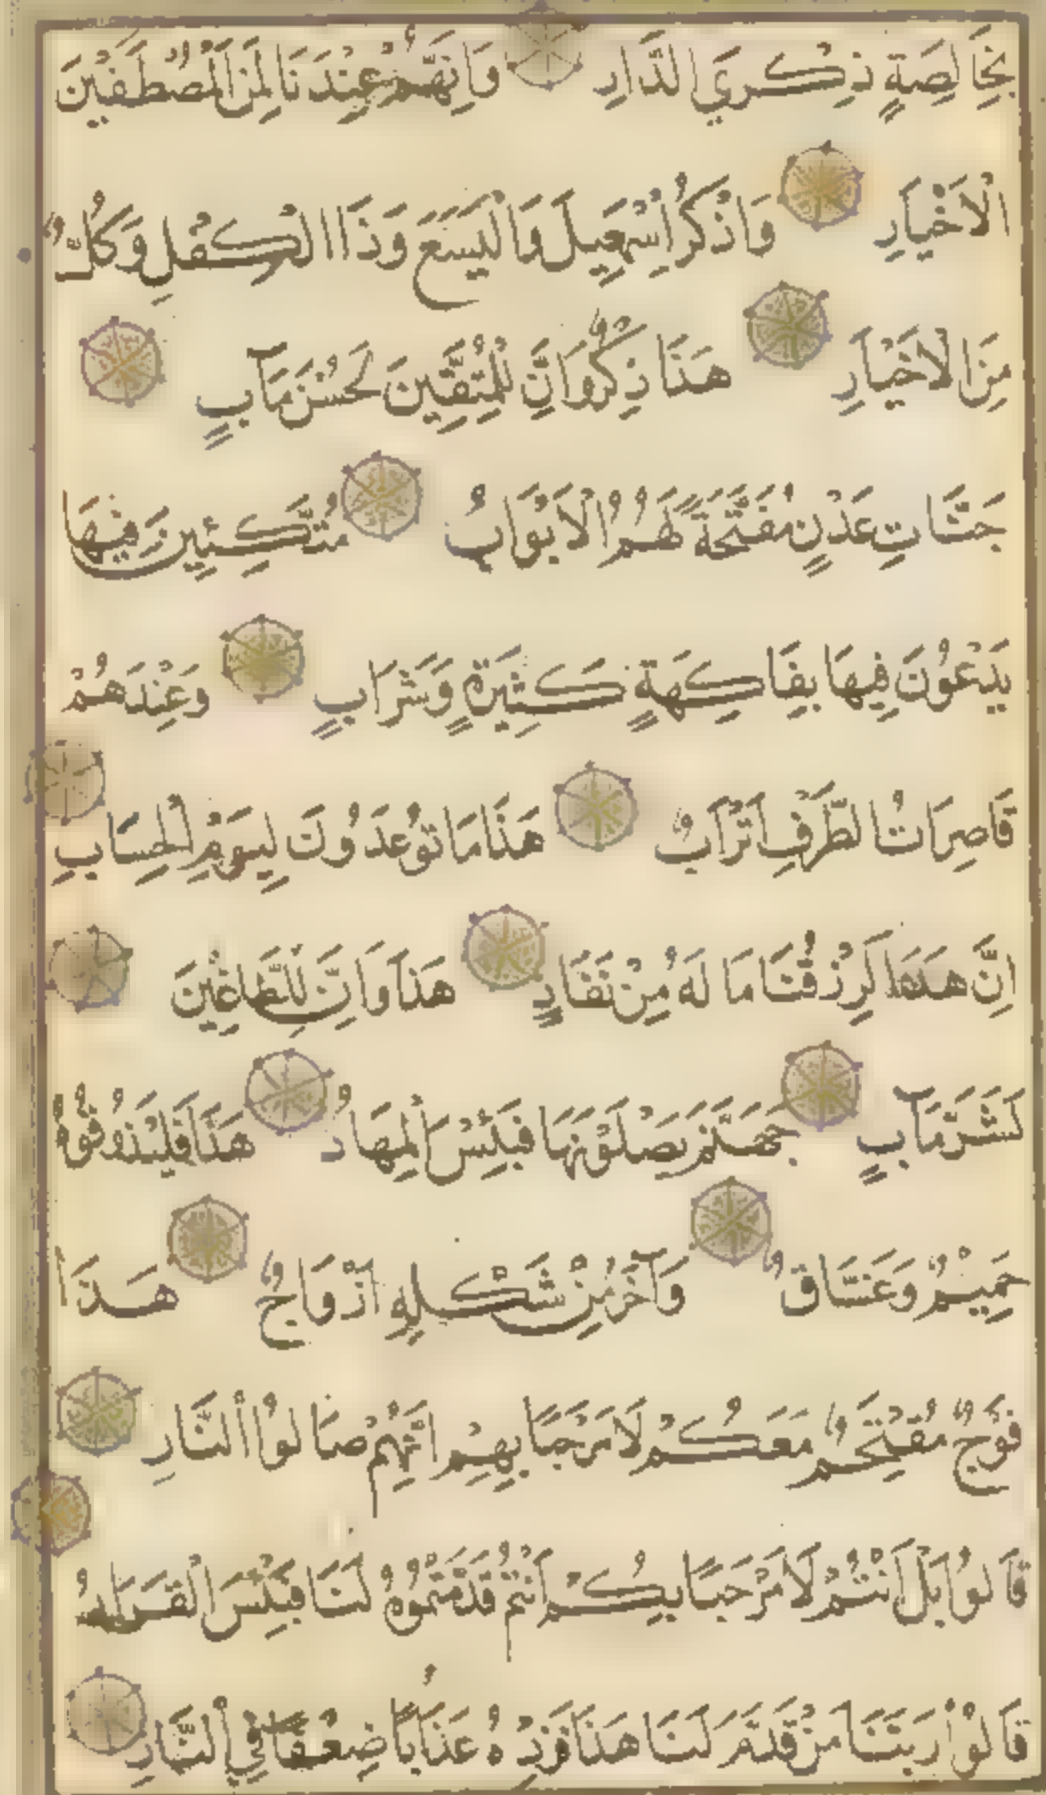 بِخَالِصَةٍ ذِكْرَي الدَّارِ وَاِنَّهُمْ عِنْدَنَا لَمِنَ الْمُصْطَفَيْنَ
الْاَخْيَارِ وَاذْكُرْ اِسْمٰعِيلَ وَالْيَسَعَ وَذَا الْكِفْلِ وَكُلٌّ
مِنَ الْاَخْيَارِ هَذَا ذِكْرٌ وَاِنَّ لِلْمُتَّقِينَ لَحُسْنَ مَآبٍ
جَنَّاتِ عَدْنٍ مُفَتَّحَةً لَهُمُ الْاَبْوَابُ مُتَّكِئِينَ فِيهَا
يَدْعُونَ فِيهَا بِفَاكِهَةٍ كَثِيرَةٍ وَشَرَابٍ وَعِنْدَهُمْ
قَاصِرَاتُ الطَّرْفِ اَتْرَابٌ هَذَا مَا تُوعَدُونَ لِيَوْمِ الْحِسَابِ
اِنَّ هَذَا لَرِزْقُنَا مَا لَهُ مِنْ نَفَادٍ هَذَا وَاِنَّ لِلطَّاغِينَ
لَشَرَّ مَآبٍ جَهَنَّمَ يَصْلَوْنَهَا فَبِئْسَ الْمِهَادُ هَذَا فَلْيَذُوقُوهُ
حَمِيمٌ وَغَسَّاقٌ وَآخَرُ مِنْ شَكْلِهِ اَزْوَاجٌ هَذَا
فَوْجٌ مُقْتَحِمٌ مَعَكُمْ لَا مَرْحَبًا بِهِمْ اِنَّهُمْ صَالُوا النَّارِ
قَالُوا بَلْ اَنْتُمْ لَا مَرْحَبًا بِكُمْ اَنْتُمْ قَدَّمْتُمُوهُ لَنَا فَبِئْسَ الْقَرَارُ
قَالُوا رَبَّنَا مَنْ قَدَّمَ لَنَا هَذَا فَزِدْهُ عَذَابًا ضِعْفًا فِي النَّارِ